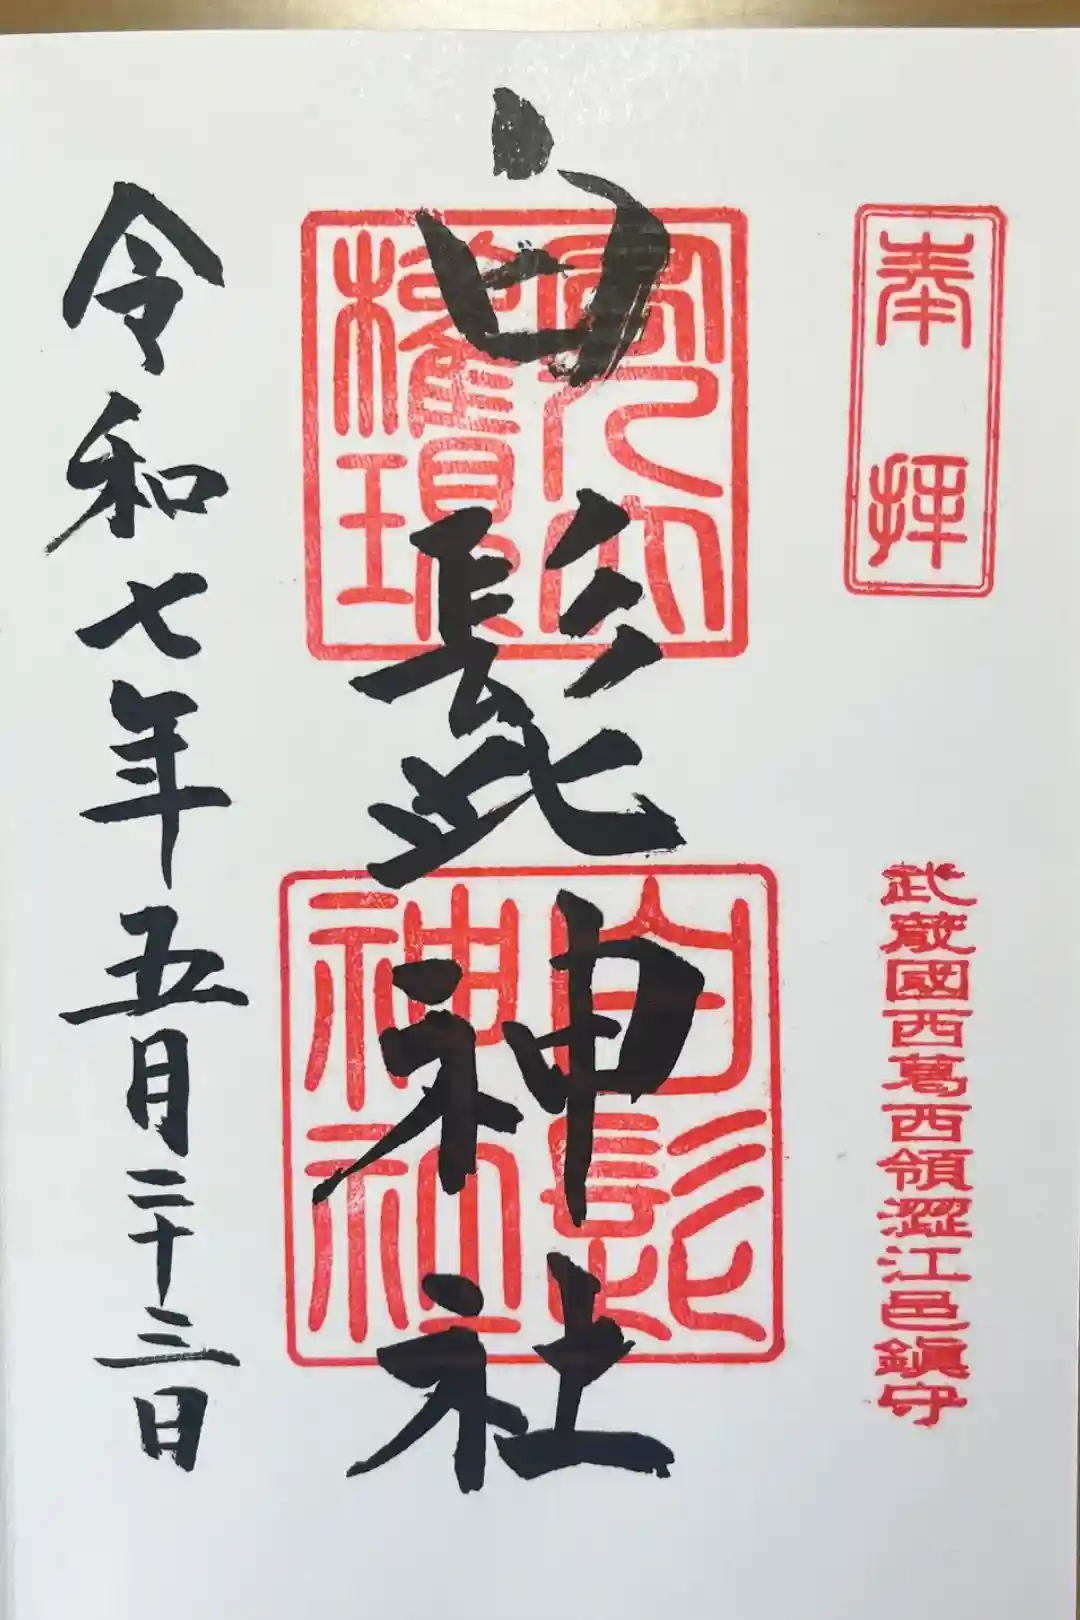 奉拝
武蔵國西葛西領澀江邑鎮守
白髭神社
客人大権現
白髭神社
令和七年五月二十三日